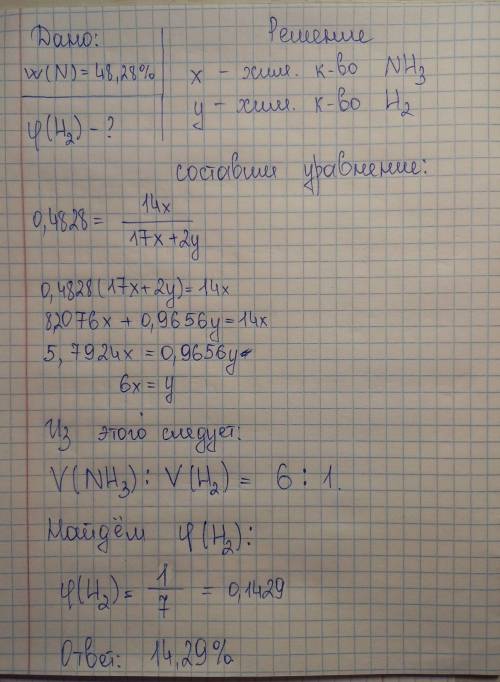 Дано:
w(N) = 48,28%
φ(H₂) - ?
Решение
x - хим. к-во NH₃
y - хим. к-во H₂
составим уравнение:
0,4828 = 14x / 17x + 2y
0,4828(17x+2y) = 14x
82076x + 0,9656y = 14x
5,7924x = 0,9656y
6x = y
Из этого следует:
V(NH₃) : V(H₂) = 6 : 1.
Найдём φ(H₂):
φ(H₂) = 1/7 = 0,1429
Ответ: 14,29%